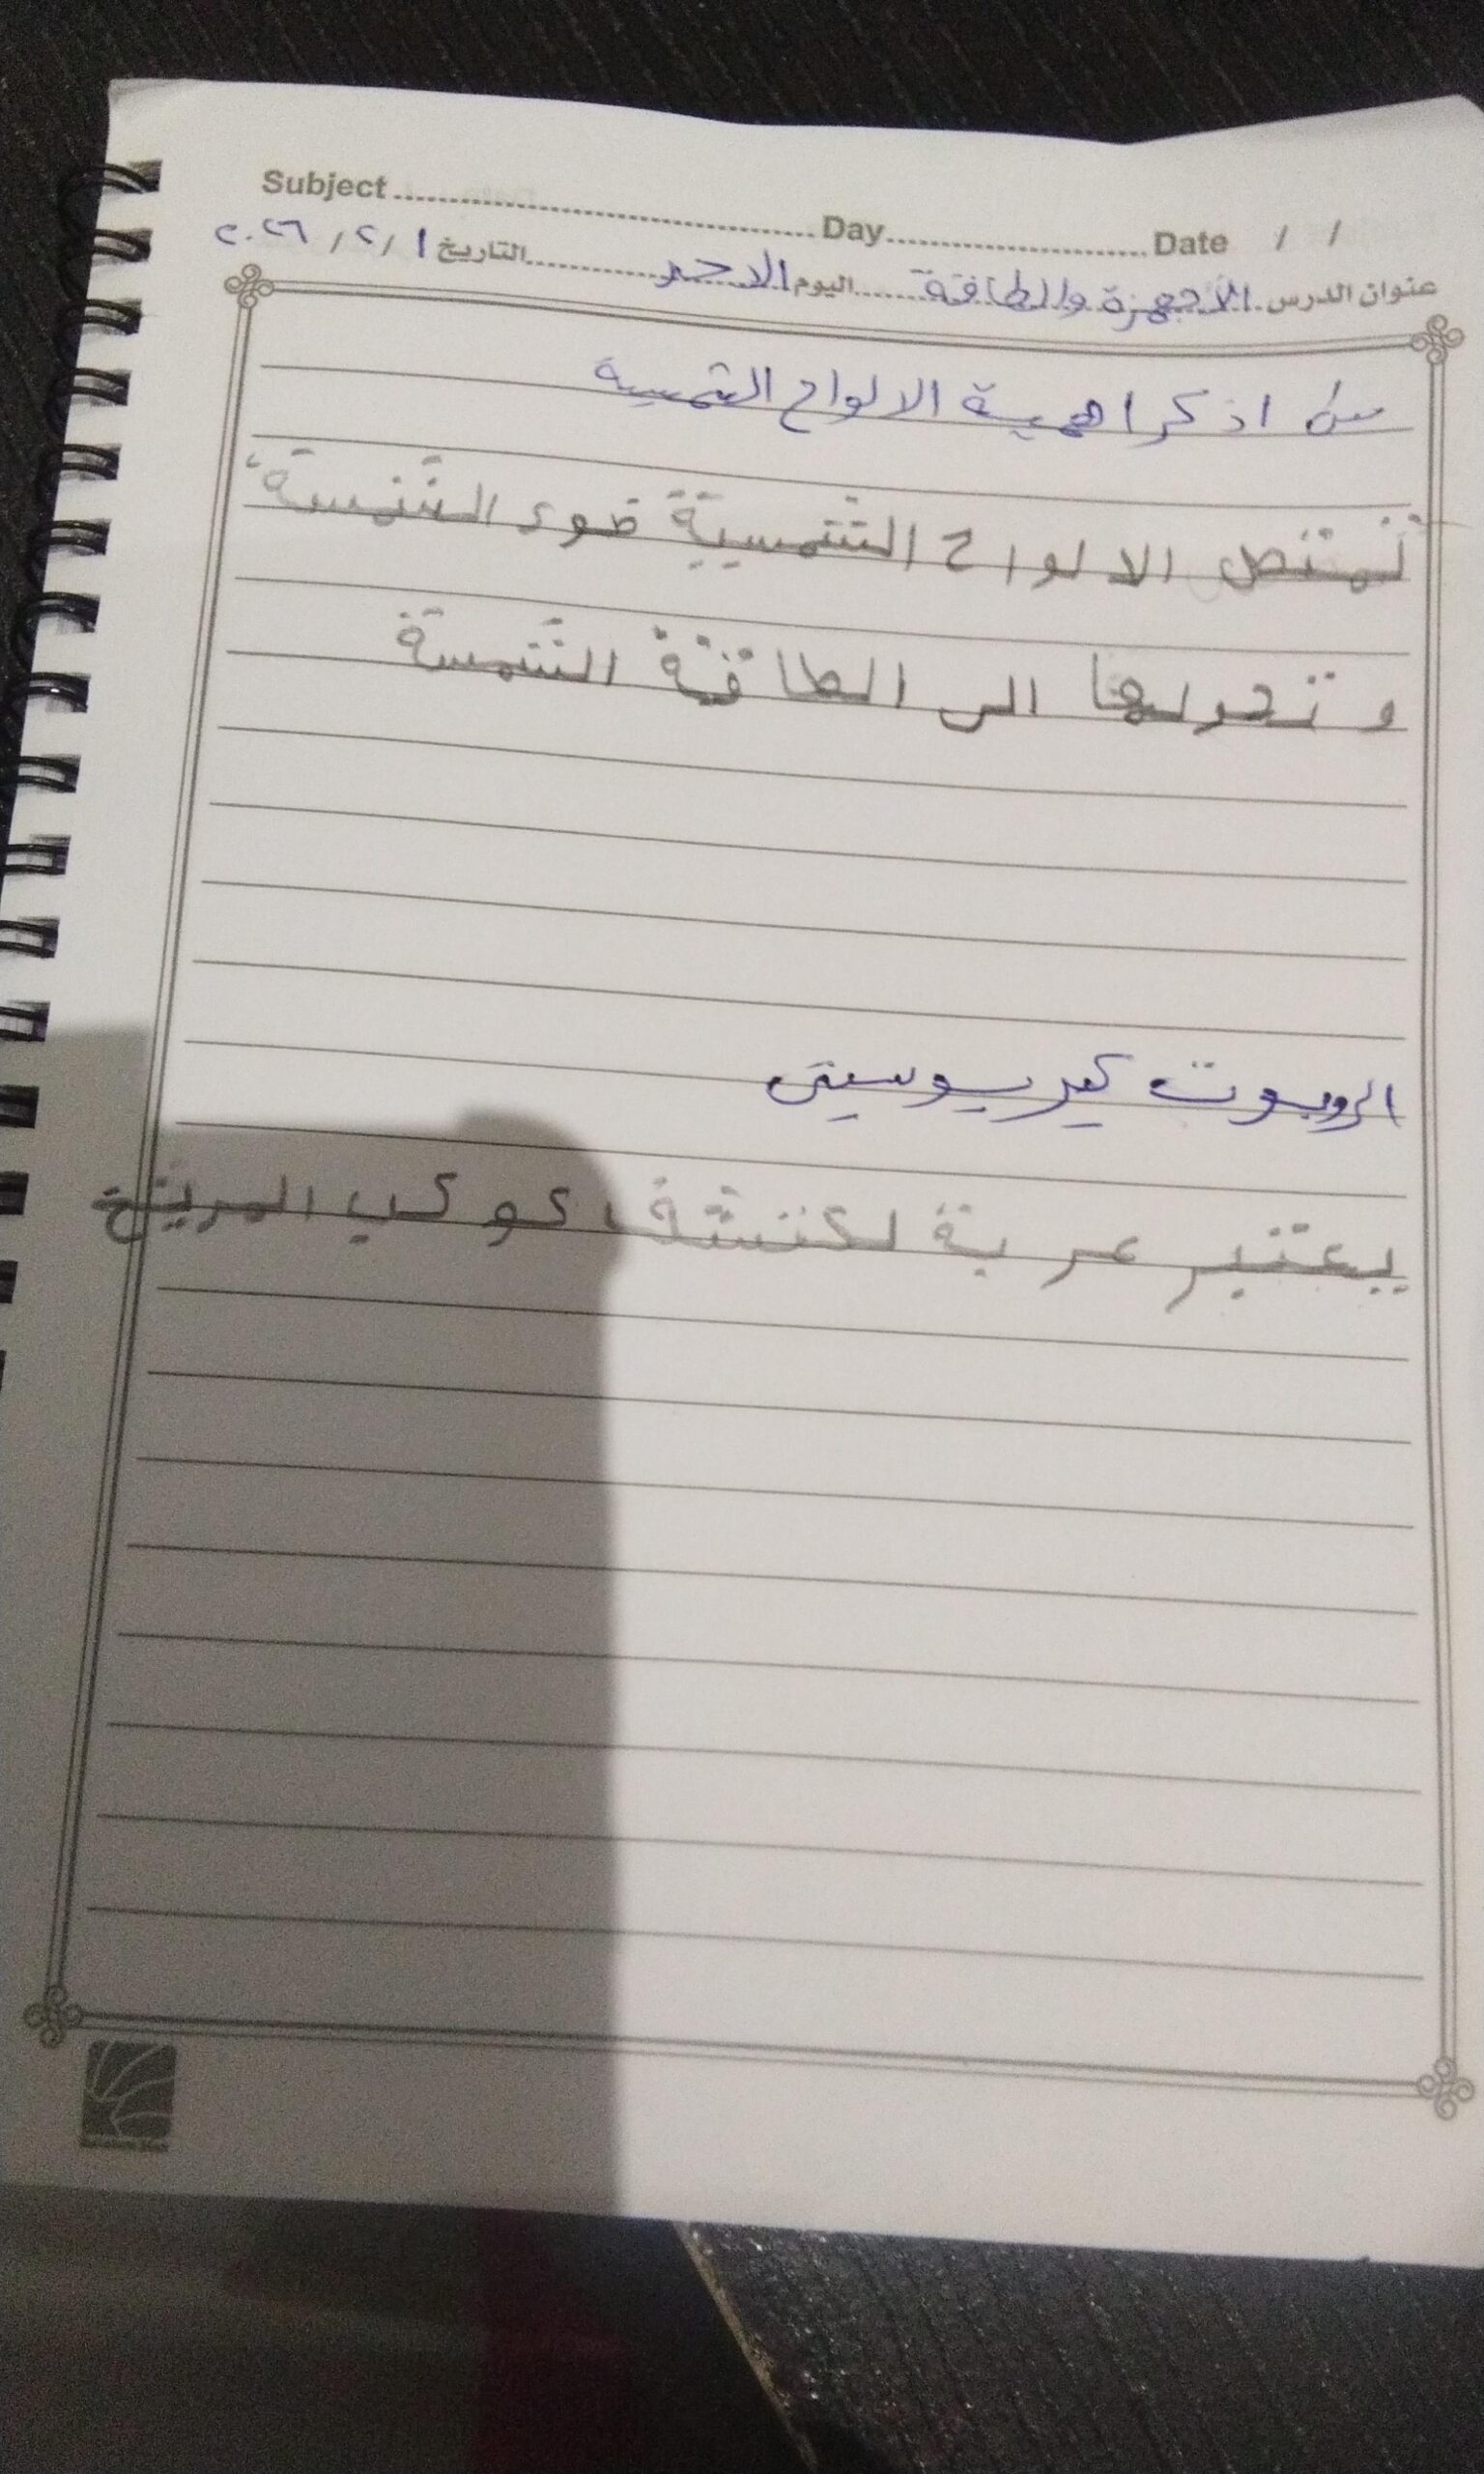 Subject ........ Day ........ Date / /
عنوان الدرس الأجهزة والطاقة اليوم الاحد التاريخ ١ / ٢ / ٢٠٢٦
س١ اذكر اهمية الالواح الشمسية
تمتص الالواح الشمسية ضوء الشمسة
وتحولها الى الطاقة الشمسة
الروبوت كيريوسيتى
يعتبر عربة لكتشف كوكب المريخ